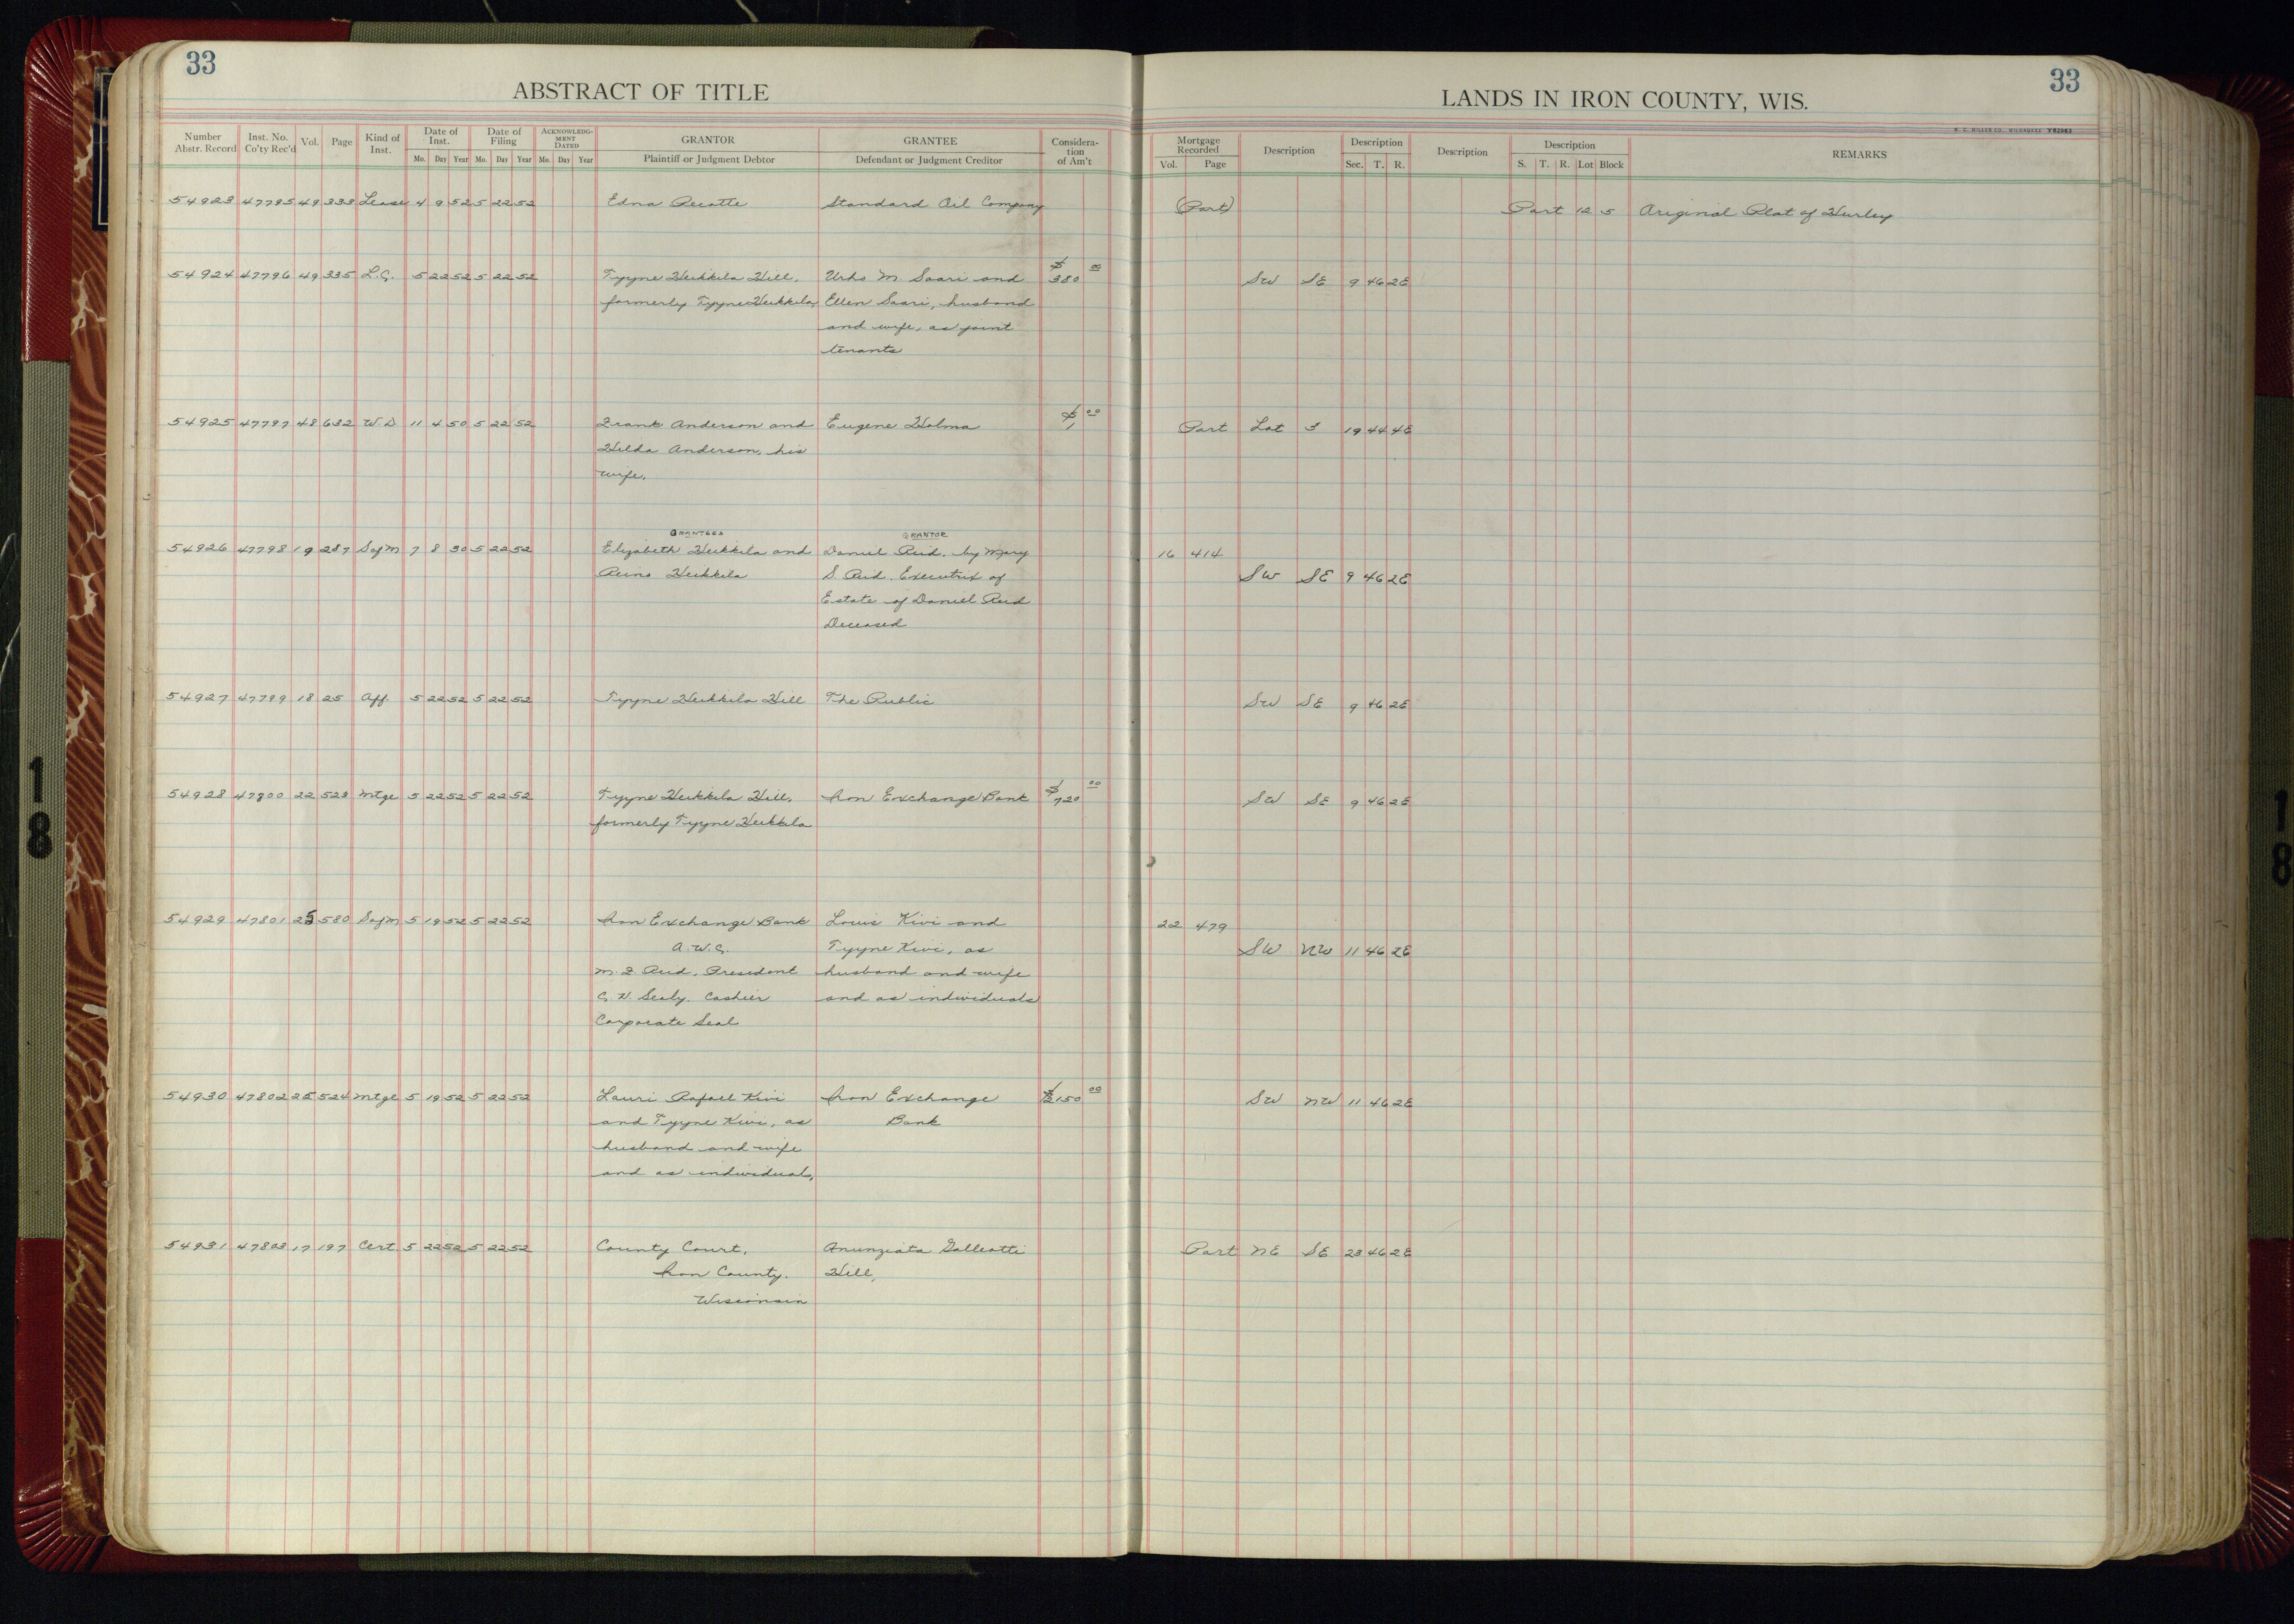 33
ABSTRACT OF TITLE
Number Abstr. Record Inst. No. Co'ty Rec'd Vol. Page Kind of Inst. Date of Inst. Mo. Day Year Date of Filing Mo. Day Year ACKNOWLEDGMENT DATED Mo. Day Year GRANTOR Plaintiff or Judgment Debtor GRANTEE Defendant or Judgment Creditor Considera-tion of Am't
54923 47795 49 333 Lease 4 9 52 5 22 52 Edna Standard Oil Company
54924 47796 49 335 L.C. 5 22 52 5 22 52 Tyyne Heikkila Hill, Urho M Saari and $380 00
formerly Tyyne Heikkila, Ellen Saari, husband
and wife, as joint
tenants
54925 47797 48 632 W.D 11 4 50 5 22 52 Frank Anderson and Eugene Holma $1 00
Hilda Anderson, his
wife.
GRANTEES GRANTOR
54926 47798 19 287 Sofm 7 8 30 5 22 52 Elizabeth Heikkila and Daniel Reid, by Mary
Reino Heikkila S. Reid, Executrix of
Estate of Daniel Reid
Deceased
54927 47799 18 25 Aff. 5 22 52 5 22 52 Tyyne Heikkila Hill The Public
54928 47800 22 523 Mtge 5 22 52 5 22 52 Tyyne Heikkila Hill, Iron Exchange Bank $720 00
formerly Tyyne Heikkila
54929 47801 25 580 Sofm 5 19 52 5 22 52 Iron Exchange Bank Louis Kivi and
A.W.C. Tyyne Kivi, as
M. F Reid, President husband and wife
C. H. Sealy, Cashier and as individuals
Corporate Seal
54930 47802 25 524 Mtge 5 19 52 5 22 52 Lauri Rafael Kivi Iron Exchange $2150 00
and Tyyne Kivi, as Bank
husband and wife
and as individuals,
54931 47803 17 197 Cert. 5 22 52 5 22 52 County Court, Anunziata Galleotti
Iron County. Hill,
Wisconsin
33
LANDS IN IRON COUNTY, WIS.
H. C. MILLER CO., MILWAUKEE Y62963
Mortgage Recorded Vol. Page Description Description Sec. T. R. Description Description S. T. R. Lot Block REMARKS
(Part) Part 12 5 Original Plat of Hurley
SW SE 9 46 2E
Part Lot 3 19 44 4E
16 414
SW SE 9 46 2E
SW SE 9 46 2E
SW SE 9 46 2E
22 479
SW NW 11 46 2E
SW NW 11 46 2E
Part NE SE 23 46 2E
18
18